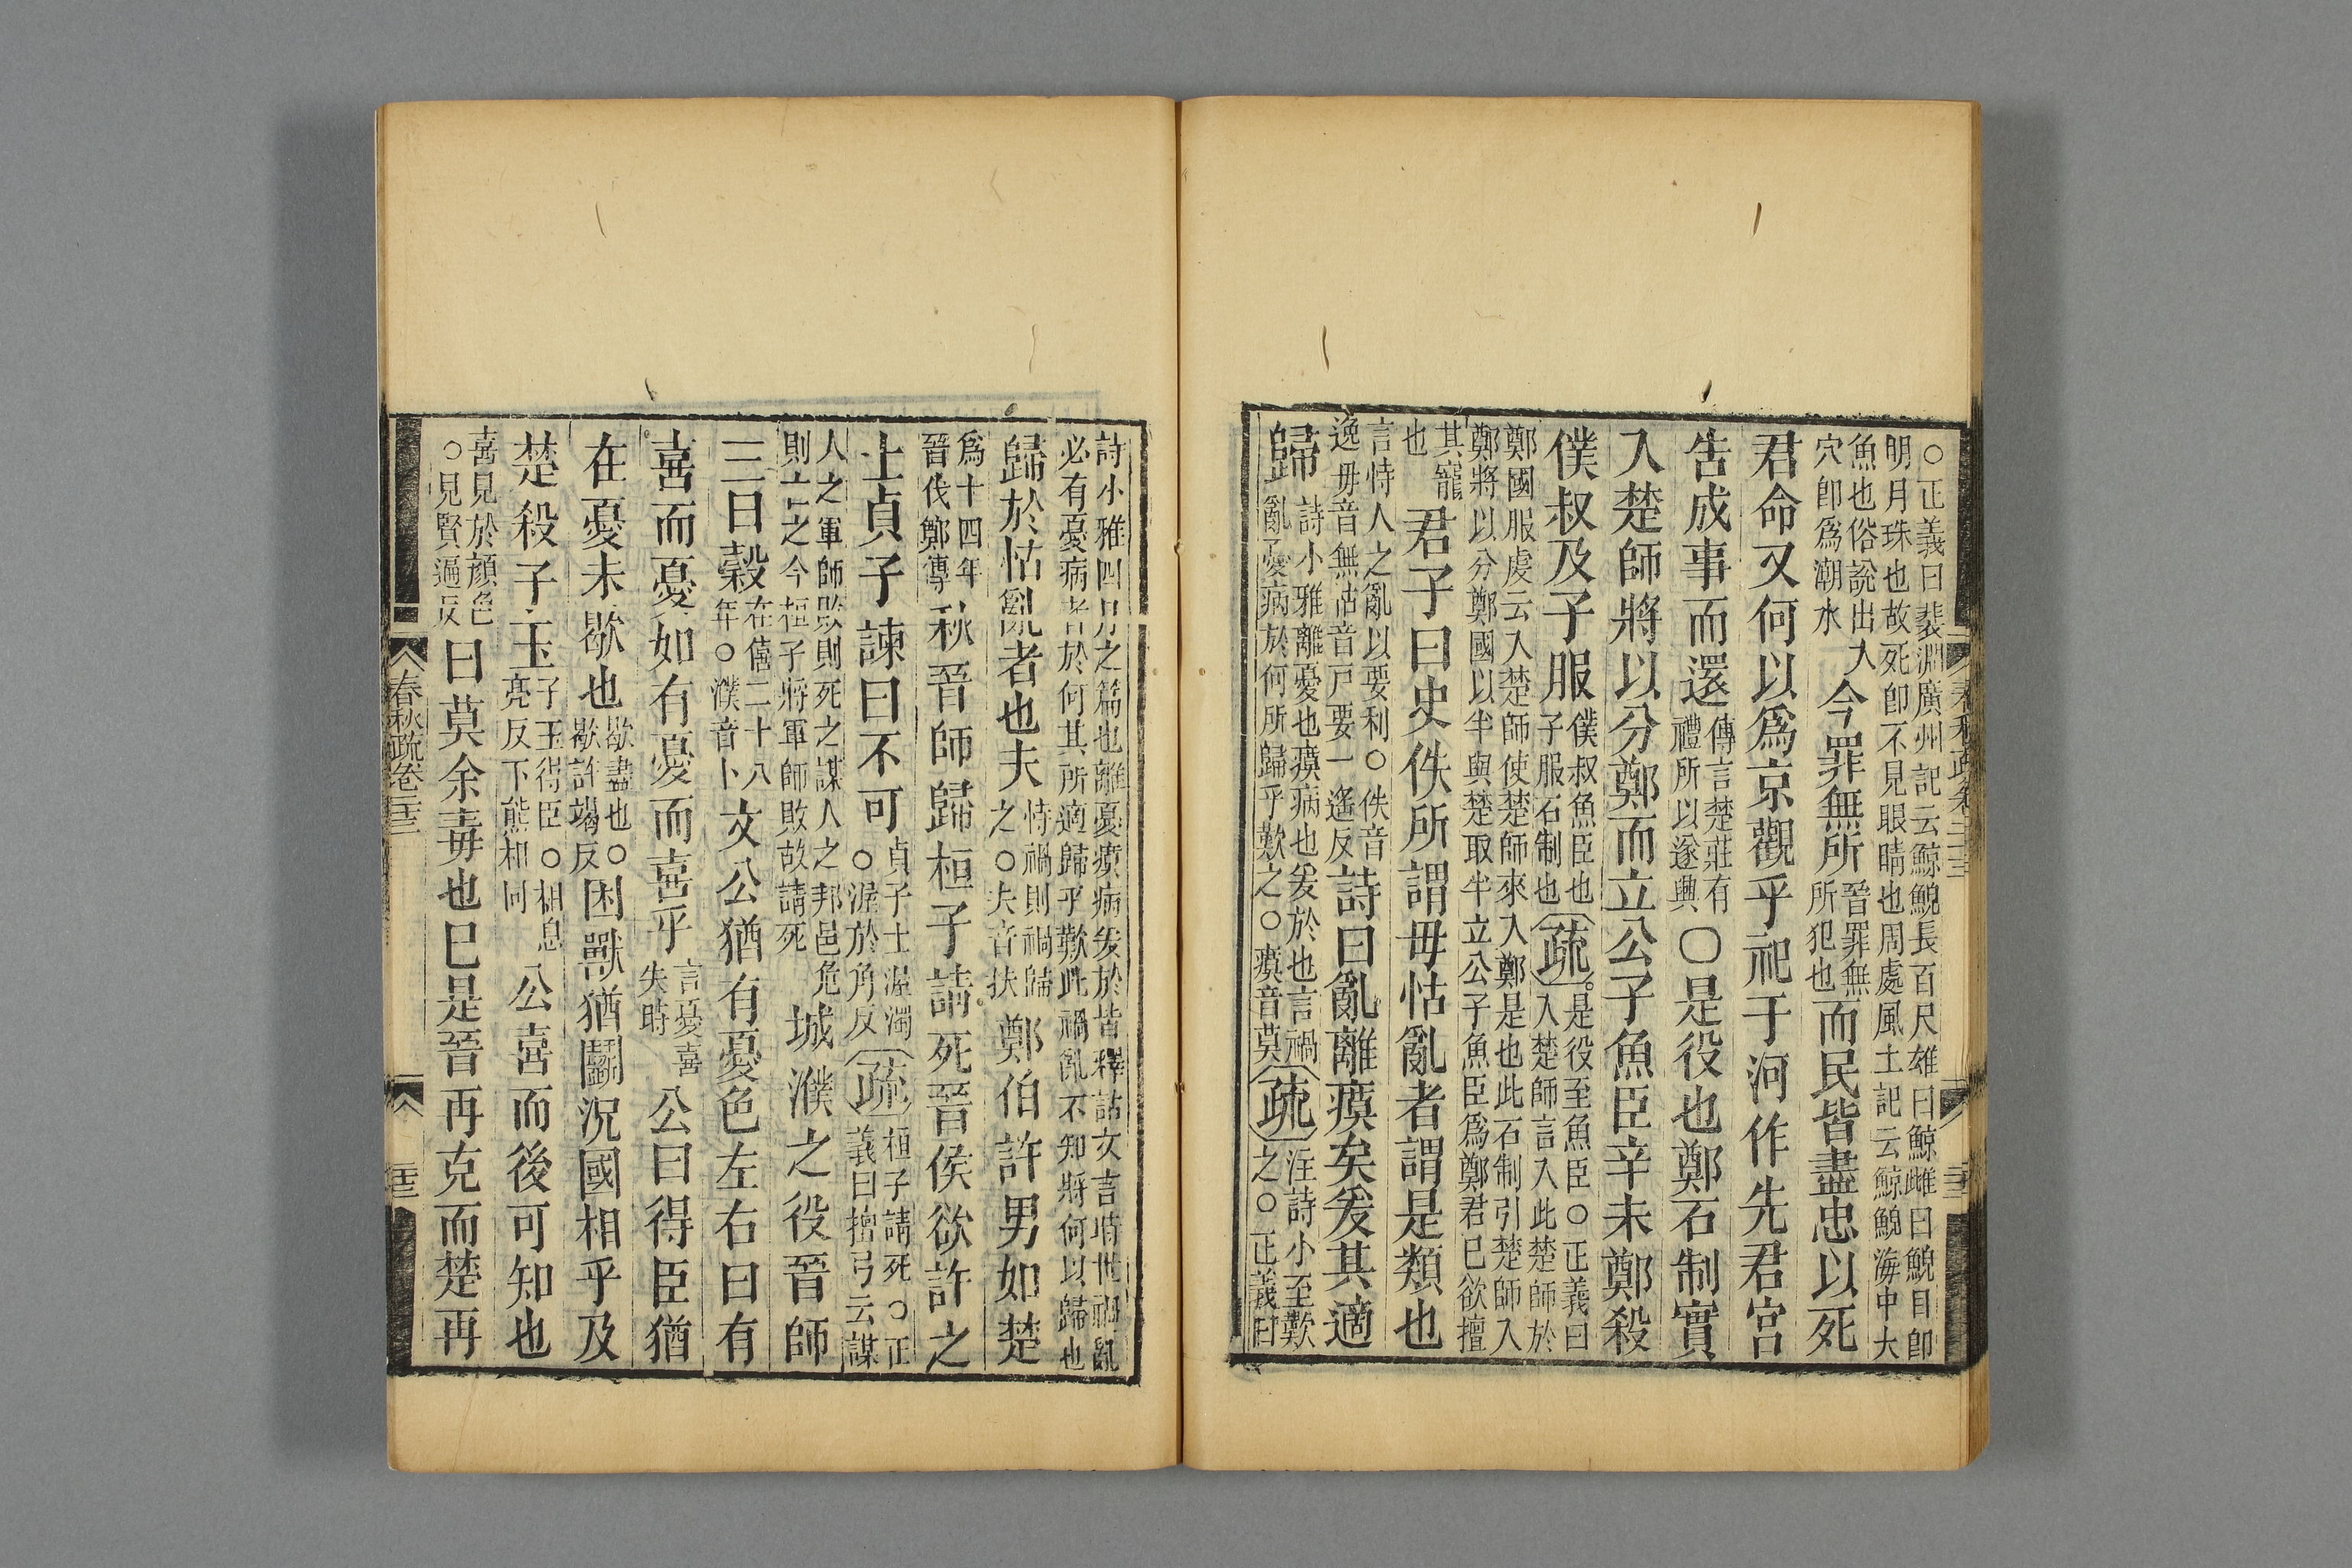 ○正義曰裴淵廣州記云鯨鯢長百尺雄曰鯨雌曰鯢目卽
明月珠也故死卽不見眼睛也周處風土記云鯨鯢海中大
魚也俗說出入穴卽爲潮水今罪無所晉罪無所犯也而民皆盡忠以死
君命又何以爲京觀乎祀于河作先君宮
告成事而還傳言楚莊有禮所以遂興○是役也鄭石制實
入楚師將以分鄭而立公子魚臣辛未鄭殺
僕叔及子服僕叔魚臣也子服石制也疏是役至魚臣○正義曰入楚師言入此楚師於
鄭國服虔云入楚師使楚師來入鄭是也此石制引楚師入
鄭將以分鄭國以半與楚取半立公子魚臣爲鄭君已欲擅
其寵也君子曰史佚所謂毋怙亂者謂是類也
言恃人之亂以要利○佚音逸毋音無怙音戸要一遙反詩曰亂離瘼矣爰其適
歸詩小雅離憂也瘼病也爰於也言禍亂憂病於何所歸乎歎之○瘼音莫疏注詩小至歎之○正義曰
詩小雅四月之篇也離憂瘼病爰於皆釋詁文言時世禍亂
必有憂病者於何其所適歸乎歎此禍亂不知將何以歸也
歸於怙亂者也夫恃禍則禍歸之○夫音扶鄭伯許男如楚
爲十四年晉伐鄭傳秋晉師歸桓子請死晉侯欲許之
士貞子諫曰不可貞子士渥濁○渥於角反疏桓子請死○正義曰檀弓云謀
人之軍師敗則死之謀人之邦邑危則亡之今桓子將軍師敗故請死城濮之役晉師
三日穀在僖二十八年○濮音卜文公猶有憂色左右曰有
喜而憂如有憂而喜乎言憂喜失時公曰得臣猶
在憂未歇也歇盡也○歇許竭反困獸猶鬬況國相乎及
楚殺子玉子玉得臣○相息亮反下熊相同公喜而後可知也
喜見於顔色○見賢遍反曰莫余毒也已是晉再克而楚再
春秋疏卷二十三